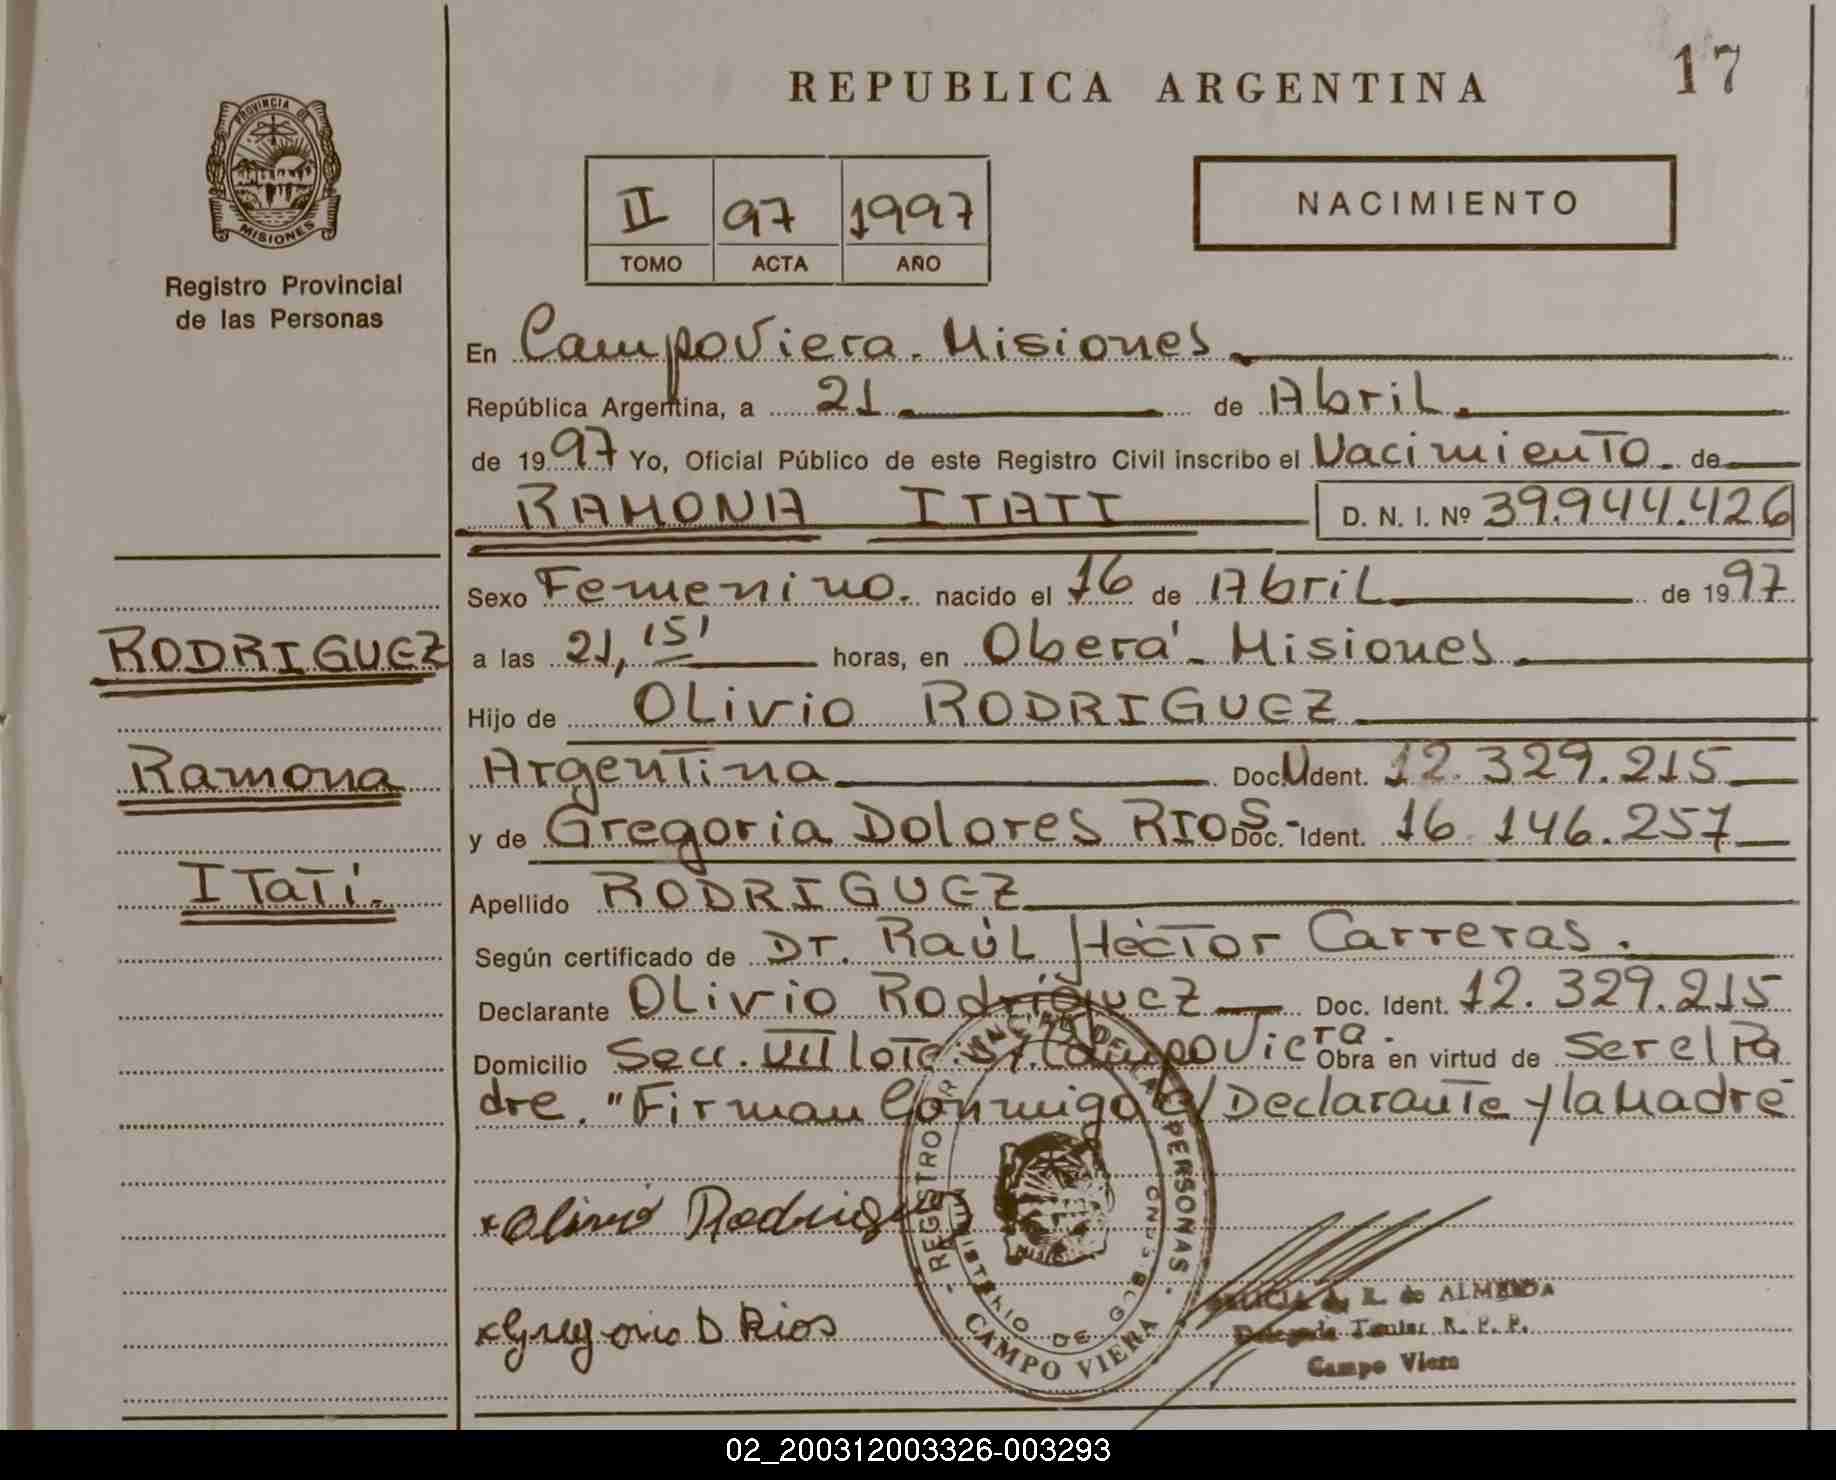 17
REPUBLICA ARGENTINA
PROVINCIA DE
MISIONES
Registro Provincial
de las Personas
II 97 1997
TOMO ACTA AÑO
NACIMIENTO
En Campo Viera. Misiones
República Argentina, a 21 de Abril.
de 1997 Yo, Oficial Público de este Registro Civil inscribo el Nacimiento. de
RAMONA ITATI D. N. I. Nº 39.944.426
Sexo Femenino. nacido el 16 de Abril de 1997
RODRIGUEZ
a las 21,15' horas, en Oberá - Misiones.
Hijo de OLivio RODRIGUEZ
Ramona
Argentina Doc. N Ident. 12.329.215
y de Gregoria Dolores RIOS.- Doc. Ident. 16.146.257
Itatí.
Apellido RODRIGUEZ
Según certificado de Dr. Raúl Héctor Carreras.
Declarante OLivio Rodríguez Doc. Ident. 12.329.215
Domicilio Secc. VIII lote Campo Viera. Obra en virtud de Ser el Pa
dre. "Firman Conmigo el Declarante y la Madre
REGISTRO PROVINCIAL DE LAS PERSONAS
MINISTERIO DE GOB
CAMPO VIERA
x Olivio Rodriguez
x Gregoria D Rios
R. de ALMEIDA
Delegada Titular R. P. P.
Campo Viera
02_200312003326-003293